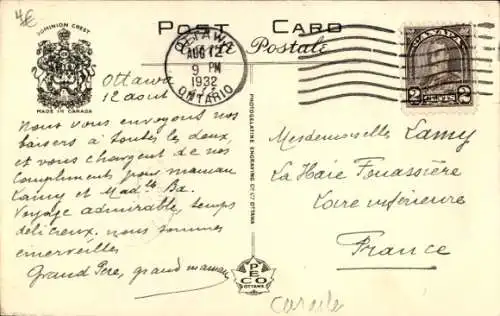 4€
DOMINION CREST
MADE IN CANADA
POST CARD
Carte Postale
OTTAWA
AUG 12
9 PM
1932
ONTARIO
CANADA
2 CENTS 2
Ottawa
12 aout
Nous vous envoyons nos
baisers à toutes les deux,
et vous chargent de nos
compliments pour maman
Lamy et Mad Ba.
Voyage admirable, temps
délicieux, nous sommes
emerveillés
Grand Père, grand maman
PHOTOGELATINE ENGRAVING CO. LTD. OTTAWA
PECO
OTTAWA
Mesdemoiselles Lamy
La Haie Fouassière
Loire inférieure
France